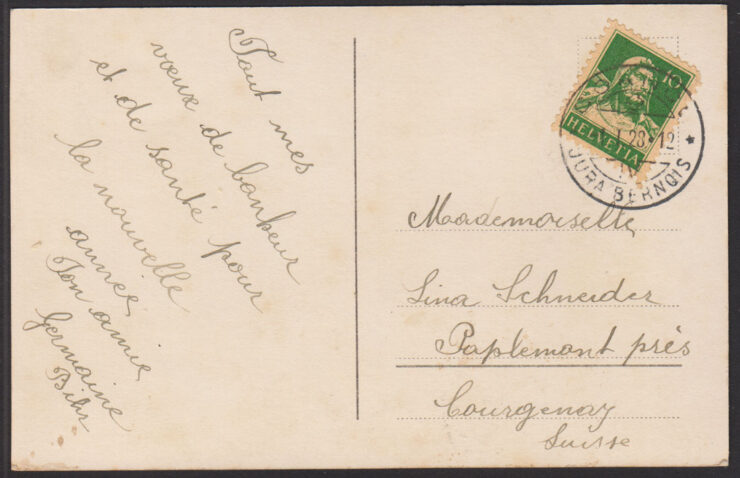 Tout mes
vœux de bonheur
et de santé pour
la nouvelle
année,
Ton amie,
Germaine
Bihr
10
HELVETIA
I 28•12
JURA BERNOIS *
Mademoiselle
Lina Schneider
Paplemont près
Courgenay
Suisse